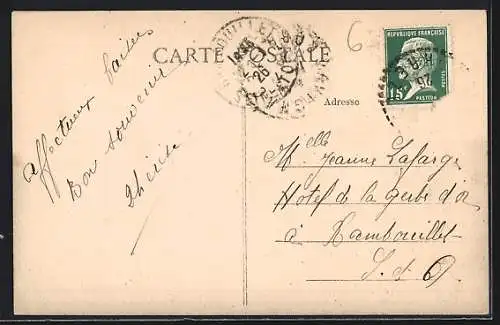 CARTE POSTALE
Adresse
6
REPUBLIQUE FRANÇAISE
15c
POSTES
PASTEUR
affectueux baisers
Bon souvenir
Thérèse
Melle Jeanne Lafarge
Hotel de la gerbe d'or
à Rambouillet
S. et O.